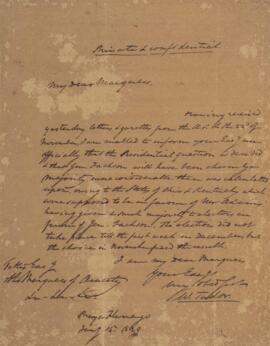 Private & confidential
My dear Marquess,
Having received
yesterday letters & gazettes from the U.S. to the 22d of
November I am enabled to inform your Exy un
officially that the Presidential question is decided
& that Gen. Jackson will have been chosen by a
majority more considerable than was calculated
upon owing to the State of Ohio & Kentucky which
were supposed to be in favour of Mr Adams
having given a much majority to electors in
favour of Gen. Jackson. The election did not
take place till the past week in december but
the choice in November past the month
I am my dear Marquess
Your Exys
To His Exy
the Marquess of Aracaty
W Tudor
Jany 15 1829